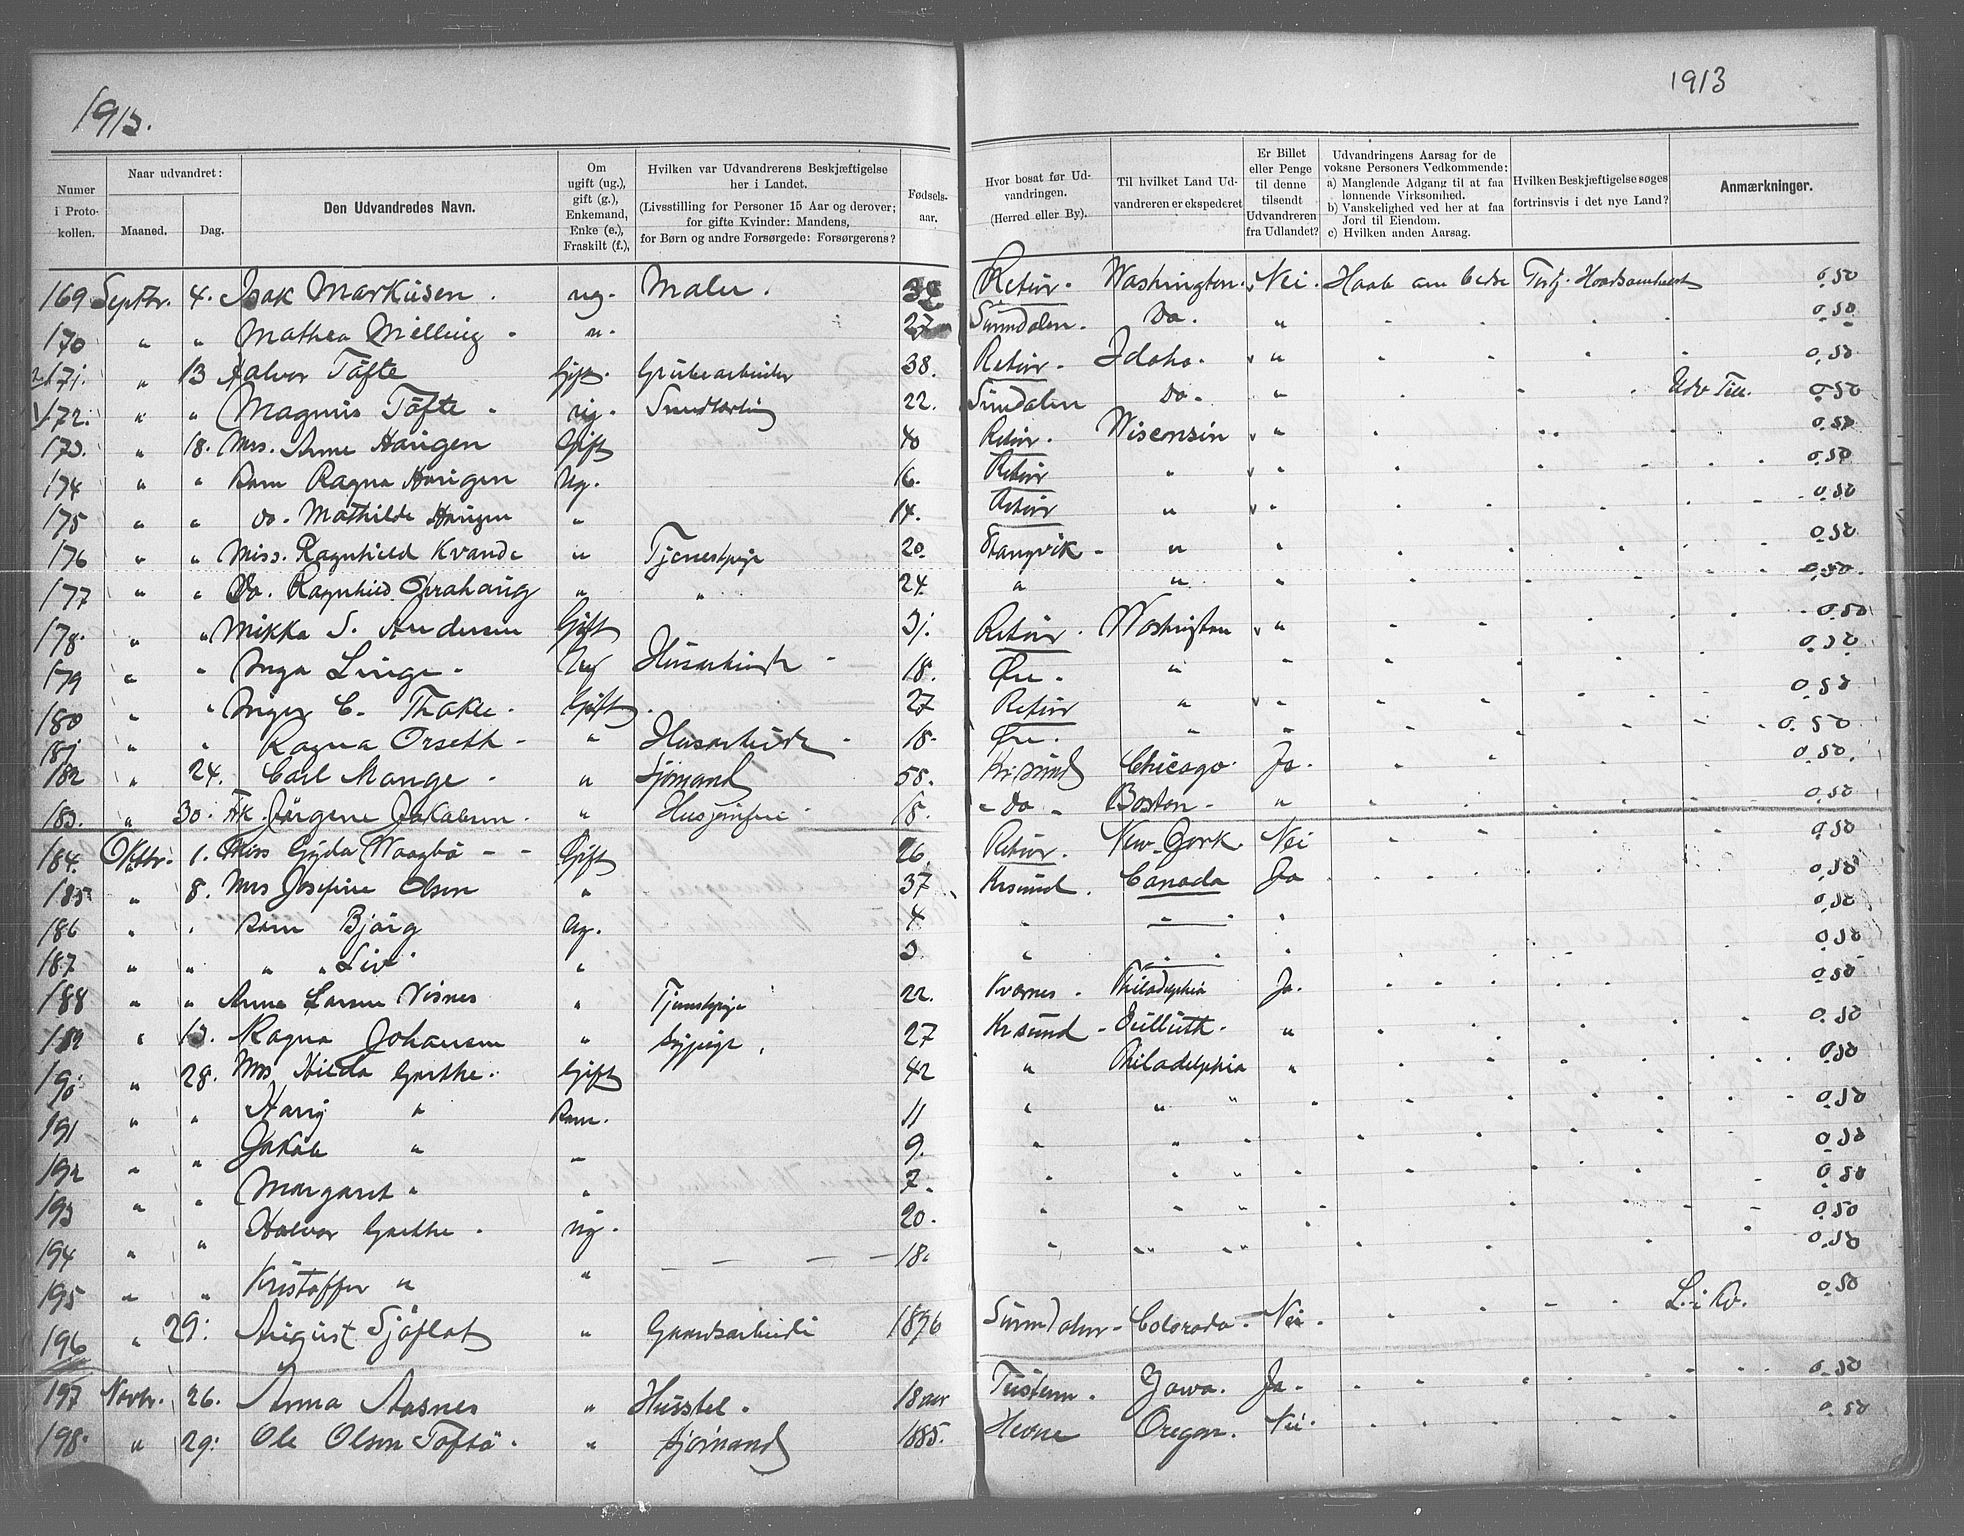 1913.
1913
Numer i Protokollen.
Naar udvandret:
Maaned.
Dag.
Den Udvandredes Navn.
Om ugift (ug.), gift (g.), Enkemand, Enke (e.), Fraskilt (f.),
Hvilken var Udvandrerens Beskjæftigelse her i Landet.
(Livsstilling for Personer 15 Aar og derover; for gifte Kvinder: Mandens, for Børn og andre Forsørgede: Forsørgerens?
Fødsels-aar.
Hvor bosat før Udvandringen.
(Herred eller By).
Til hvilket Land Udvandreren er ekspederet
Er Billet eller Penge til denne tilsendt Udvandreren fra Udlandet?
Udvandringens Aarsag for de voksne Personers Vedkommende:
a) Manglende Adgang til at faa lønnende Virksomhed.
b) Vanskelighed ved her at faa Jord til Eiendom.
c) Hvilken anden Aarsag.
Hvilken Beskjæftigelse søges fortrinsvis i det nye Land?
Anmærkninger.
169 Septbr. 4. Isak Markusen . ug. Maler . Retür. Washington. Nei. Haab om bedre 0.50
170 " " Mathea Melling . " 27 Sundalen. Do. " 0.50
171. " 13 Halvor Töfte Gift. Grubearbeider 38. Retür. Idaho. " 0.50
172. " " Magnus Töfte . ug. 22. Sundalen Do. " Udv Till. 0.50
173. " 18. Mrs. Anne Haugen Gift 40 Retür. Wisconsin " 0.50
174 " " Barn Ragna Haugen Ug. 16. Retür " 0.50
175 " " do. Mathilde Haugen " 14. Retür " " 0.50
176 " " Miss. Ragnhild Kvande " Tjenestpige 20. Stangvik " " 0.50
177 " " Do. Ragnhild " " 24. " " " 0.50.
178. " " Mikka S. Andersen Gift 31. Retür. Washington " 0.50
179 " " Inga Linge. Ug Husarbeide 18. Øre. " " 0.50
180 " " Inger C. Thake. Gift. 27 Retür " " 0.50
181 " " Ragna Orseth " Husarbeide 18. Øre. " " 0.50
182 " 24. Carl Mange . " Sjömand 58. Kr.sund Chicago. Ja. 0.50.
183. " 30. Frk. Jörgene Jakobsen. " 18. " Do " Boston. " 0.50
184. Oktbr. 1. Gyda Waagbö Gift 26. Retür. New York. Nei 0.50
185 " 8. Mrs Josefine Olsen " 37 Krsund. Canada Ja 0.50
186 " " Barn Bjørg ug. 4 0.50
187 " " " " Liv " 3. " 0.50
188 " " Anna Larsen Visnes " Tjenestpige 22. Kvernes. Philadelphia Ja. 0.50
189 " 13. Ragna Johansen " Sypige. 27 Krsund Dulluth. " 0.50
190. " 28. Mrs Hilda Garthe. Gift 42 " Philadelphia " 0.50
191 " " Harry " Barn. 11 " " " 0.50
192 " " Jakob " " 9. " " " 0.50
193 " " Margaret " " 7. " " " 0.50
194 " " Halvor Garthe . ug. 20. " " " 0.50
195 " " Kristoffer " " 18. " " " 0.50
196 " 29. August Sjöflat " Gaardsarbeide 1896 Sunndalen Colorado. Nei. L. i Kv. 0.50
197 Novbr. 26. Anna Aasnes " Husstel. 18 aar Tustern. Jowa. Ja. 0.50
198. " 29. Ole Olsen Töftö. " Sjömand 1885. Hevne Oregon. Nei. 0.50